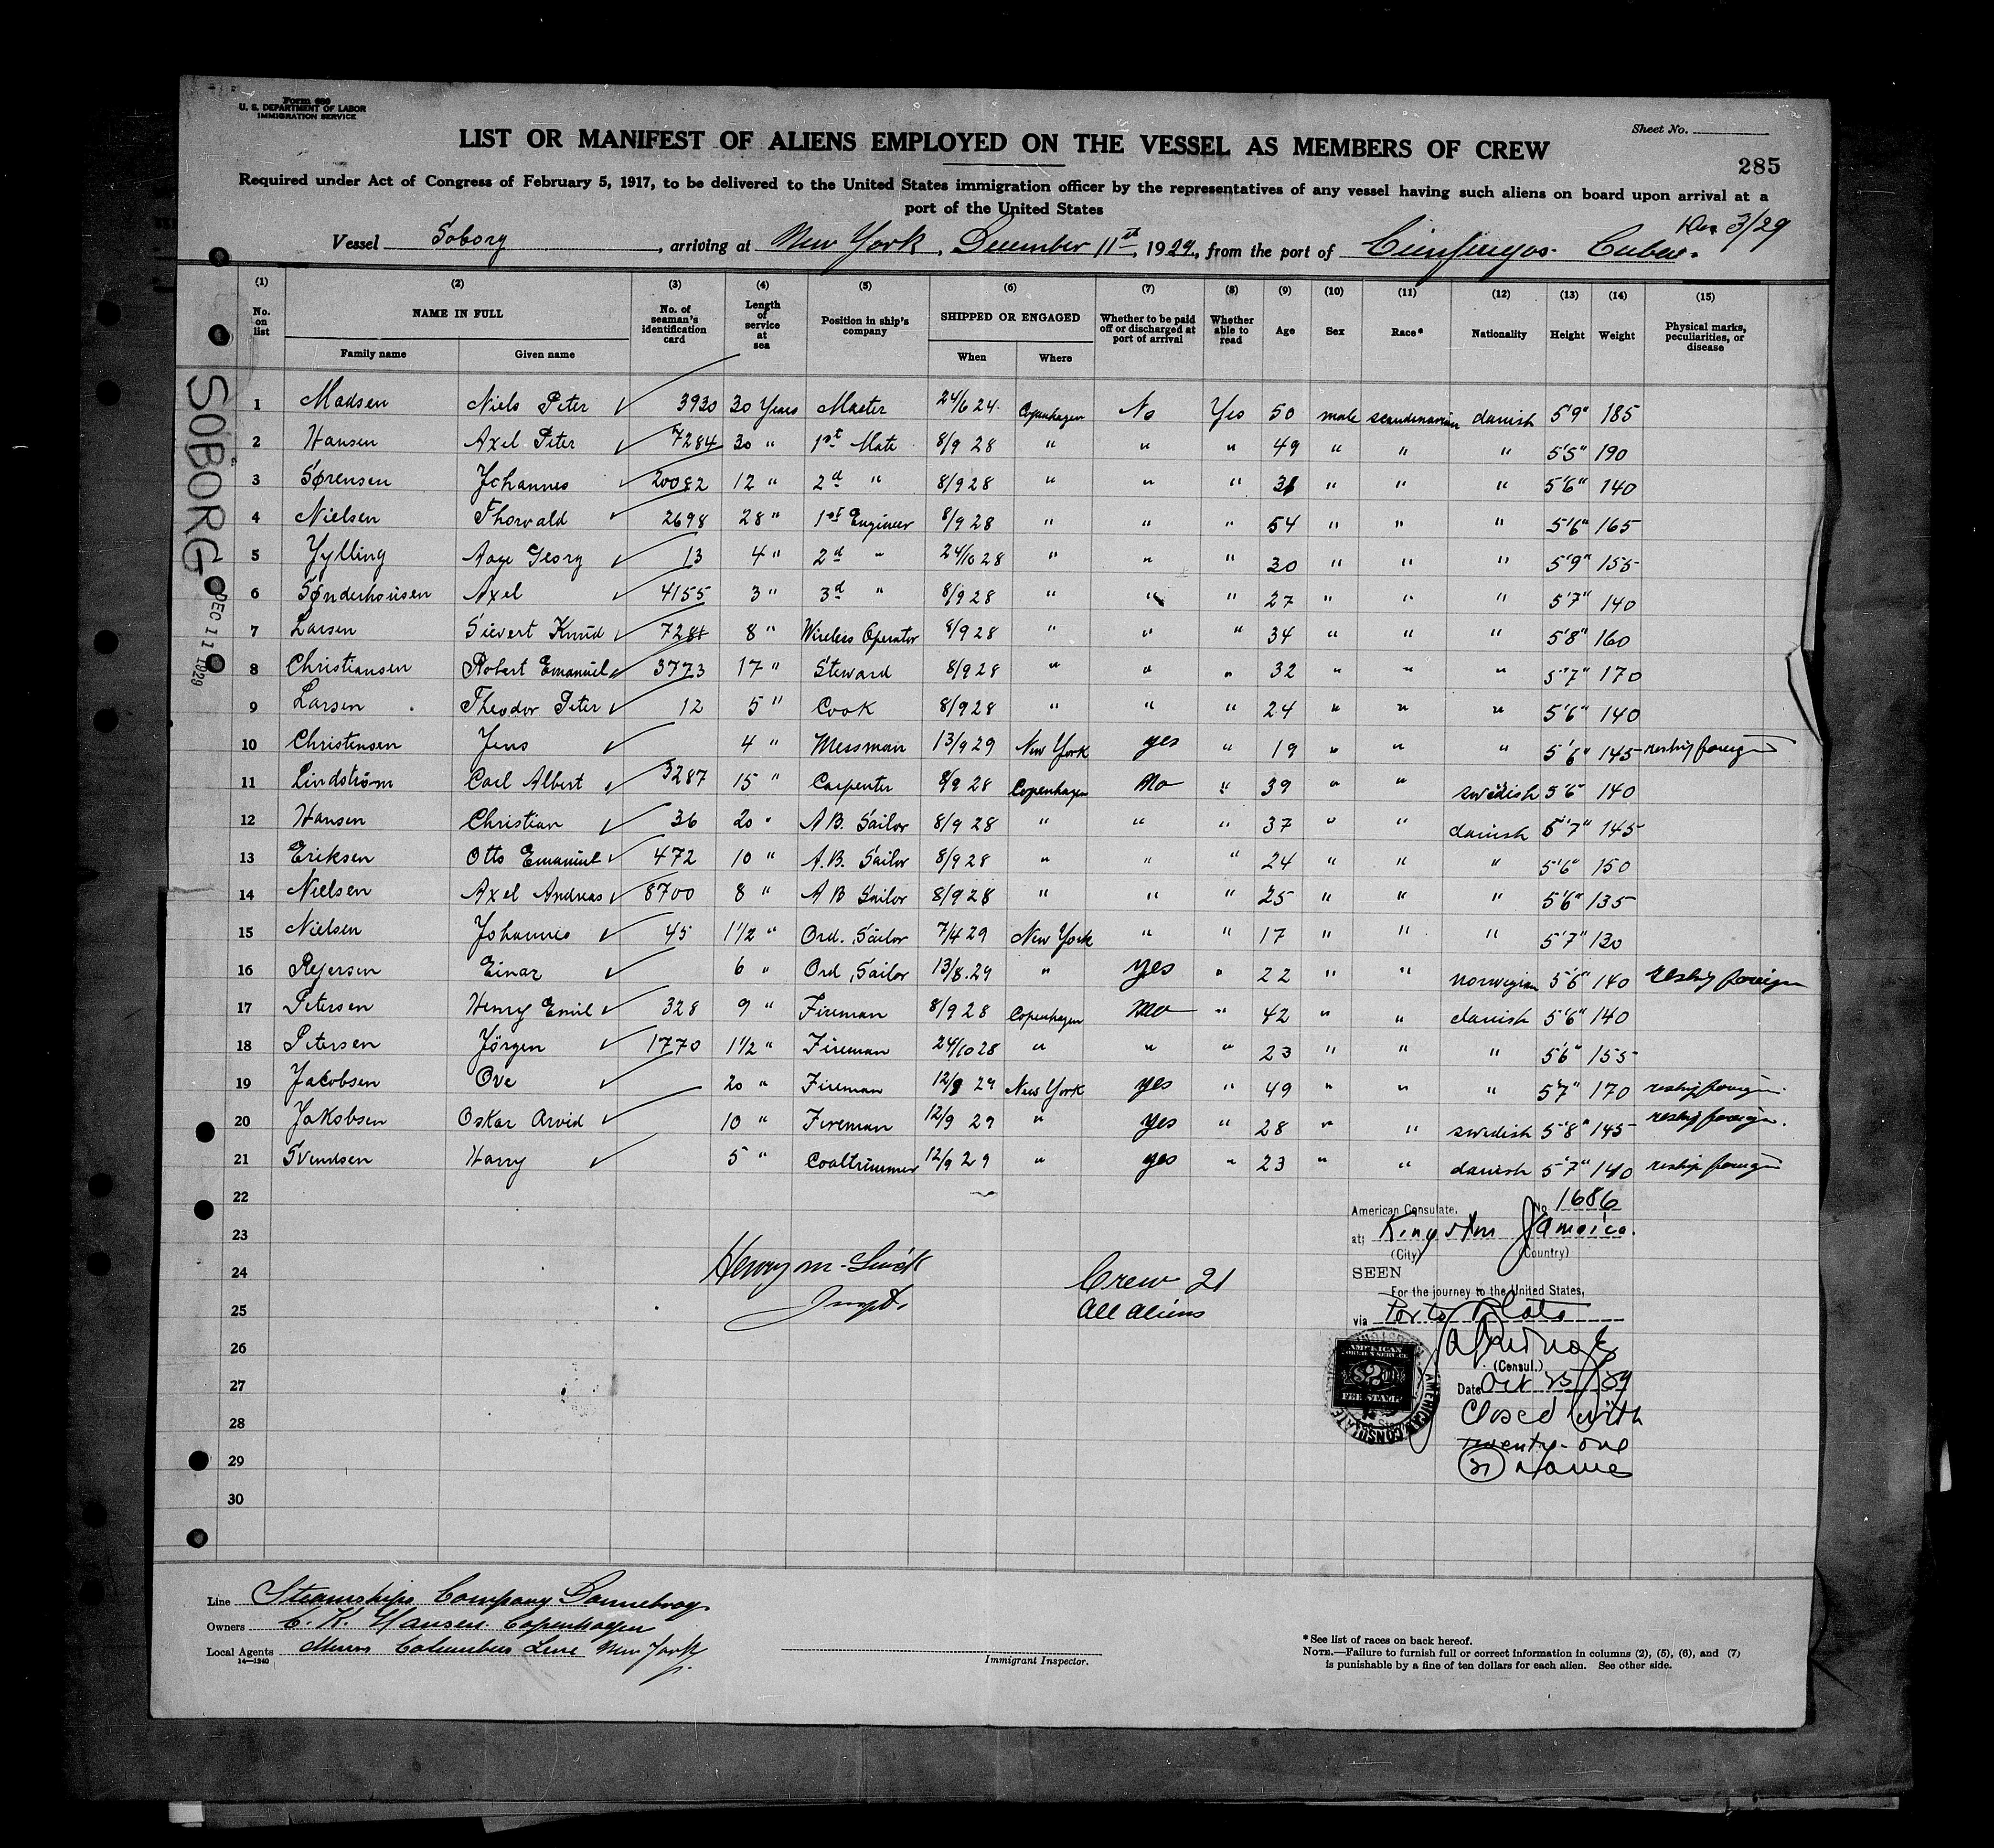 Form 680
U. S. DEPARTMENT OF LABOR
IMMIGRATION SERVICE
Sheet No.
LIST OR MANIFEST OF ALIENS EMPLOYED ON THE VESSEL AS MEMBERS OF CREW
285
Required under Act of Congress of February 5, 1917, to be delivered to the United States immigration officer by the representatives of any vessel having such aliens on board upon arrival at a
port of the United States
Dec 3/29
Vessel Soborg, arriving at New York, December 11th, 1929, from the port of Cienfuegos Cuba.
(1) (2) (3) (4) (5) (6) (7) (8) (9) (10) (11) (12) (13) (14) (15)
No. on list NAME IN FULL No. of seaman's identification card Length of service at sea Position in ship's company SHIPPED OR ENGAGED Whether to be paid off or discharged at port of arrival Whether able to read Age Sex Race* Nationality Height Weight Physical marks, peculiarities, or disease
Family name Given name When Where
SOBORG
DEC 11 1929
1 Madsen Niels Peter 3930 30 Years Master 24/6 24 Copenhagen No Yes 50 male scandinavian danish 5'9" 185
2 Hansen Axel Peter 7284 30 " 1st Mate 8/9 28 " " " 49 " " " 5'5" 190
3 Sørensen Johannes 20082 12 " 2d " 8/9 28 " " " 31 " " " 5'6" 140
4 Nielsen Thorvald 2698 28 " 1st Engineer 8/9 28 " " " 54 " " " 5'6" 165
5 Yylling Aage Georg 13 4 " 2d " 24/10 28 " " " 30 " " " 5'9" 155
6 Sønderhousen Axel 4155 3 " 3d " 8/9 28 " " " 27 " " " 5'7" 140
7 Larsen Sievert Knud 7281 8 " Wireless Operator 8/9 28 " " " 34 " " " 5'8" 160
8 Christiansen Robert Emanuel 3773 17 " Steward 8/9 28 " " " 32 " " " 5'7" 170
9 Larsen Theodor Peter 12 5 " Cook 8/9 28 " " " 24 " " " 5'6" 140
10 Christensen Jens 4 " Messman 13/9 29 New York yes " 19 " " " 5'6" 145 reship foreign
11 Lindstrøm Carl Albert 3287 15 " Carpenter 8/9 28 Copenhagen No " 39 " " swedish 5'6" 140
12 Hansen Christian 36 20 " A B. Sailor 8/9 28 " " " 37 " " danish 5'7" 145
13 Eriksen Otto Emanuel 472 10 " A.B. Sailor 8/9 28 " " " 24 " " " 5'6" 150
14 Nielsen Axel Andreas 8700 8 " A B Sailor 8/9 28 " " " 25 " " " 5'6" 135
15 Nielsen Johannes 45 1 1/2 " Ord. Sailor 7/4 29 New York " " 17 " " " 5'7" 130
16 Rejersen Einar 6 " Ord Sailor 13/8.29 " yes " 22 " " norwegian 5'6" 140 reship foreign
17 Petersen Henry Emil 328 9 " Fireman 8/9 28 Copenhagen No " 42 " " danish 5'6" 140
18 Petersen Jörgen 1770 1 1/2 " Fireman 24/10 28 " " " 23 " " " 5'6" 155
19 Jacobsen Ove 20 " Fireman 12/9 29 New York yes " 49 " " " 5'7" 170 reship foreign
20 Jakobsen Oskar Arvid 10 " Fireman 12/9 29 " yes " 28 " " swedish 5'8" 145 reship foreign.
21 Svendsen Harry 5 " Coaltrimmer 12/9 29 " yes " 23 " " danish 5'7" 140 reship foreign
22
23
24
25
26
27
28
29
30
Henry M.
Inspt.
Crew 21
all aliens
American Consulate, No 1686
at: Kingston Jamaica.
(City) (Country)
SEEN
For the journey to the United States,
via Porto Plata
(Consul.)
Date Oct 25/29
Closed with
twenty-one
(21) names
AMERICAN
FOREIGN SERVICE
FEE STAMP
AMERICAN CONSULATE
Line Steamships Company Dannebrog
Owners C. K. Hansen Copenhagen
Local Agents Messrs Columbus Line New York
14—1240
Immigrant Inspector.
* See list of races on back hereof.
NOTE.—Failure to furnish full or correct information in columns (2), (5), (6), and (7)
is punishable by a fine of ten dollars for each alien. See other side.